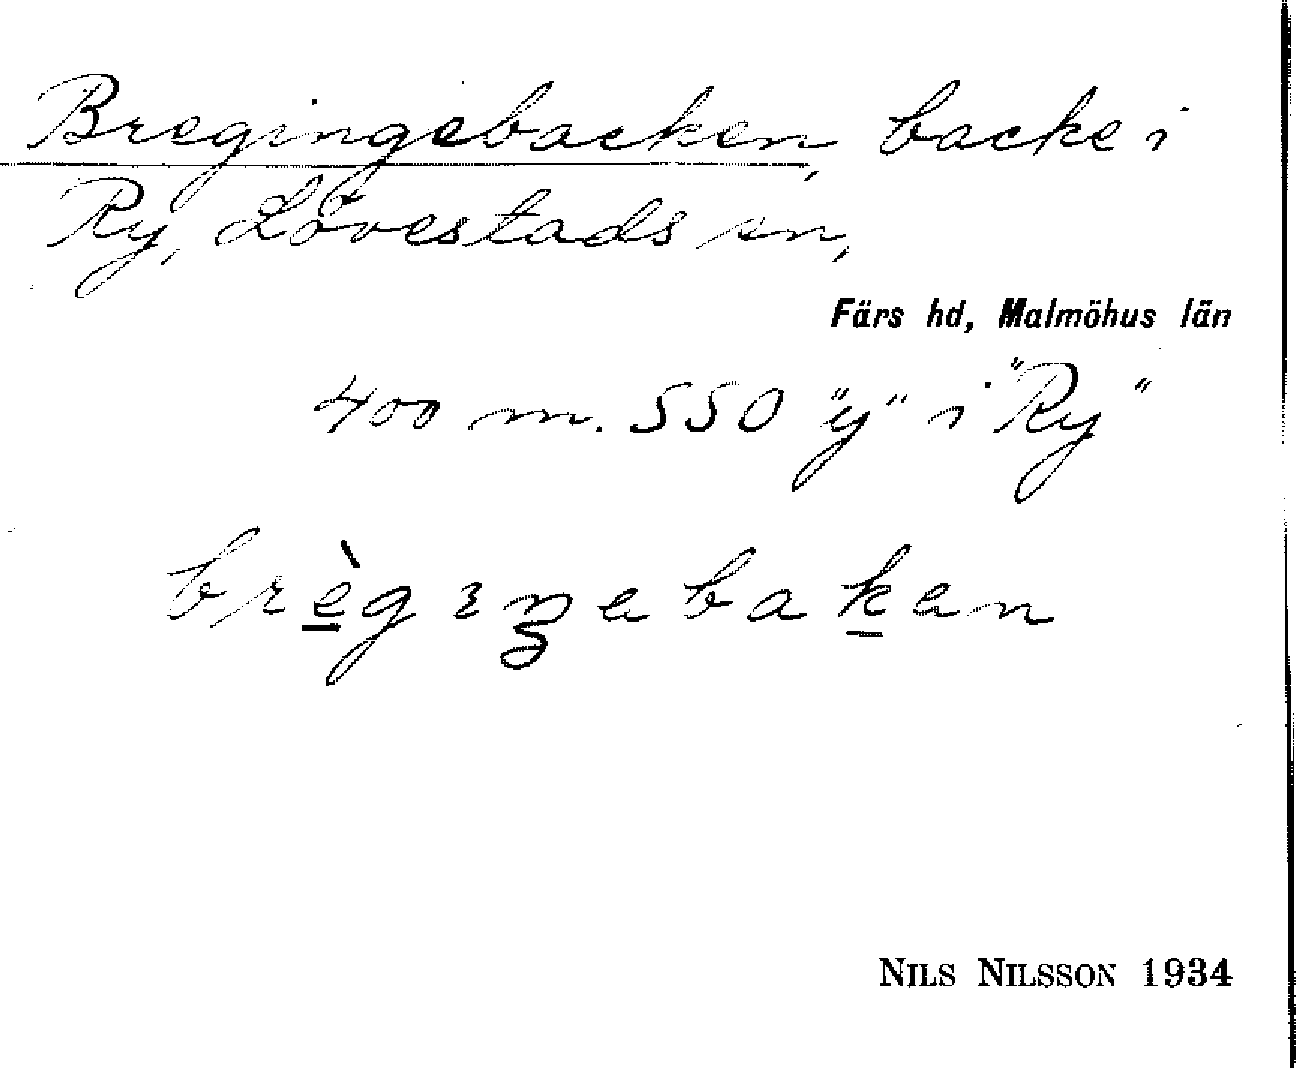 Bregingebacken, backe i
Ry, Lövestads sn,
Färs hd, Malmöhus län
400 m. SSO "y" i "Ry"
brègıŋebaken
NILS NILSSON 1934